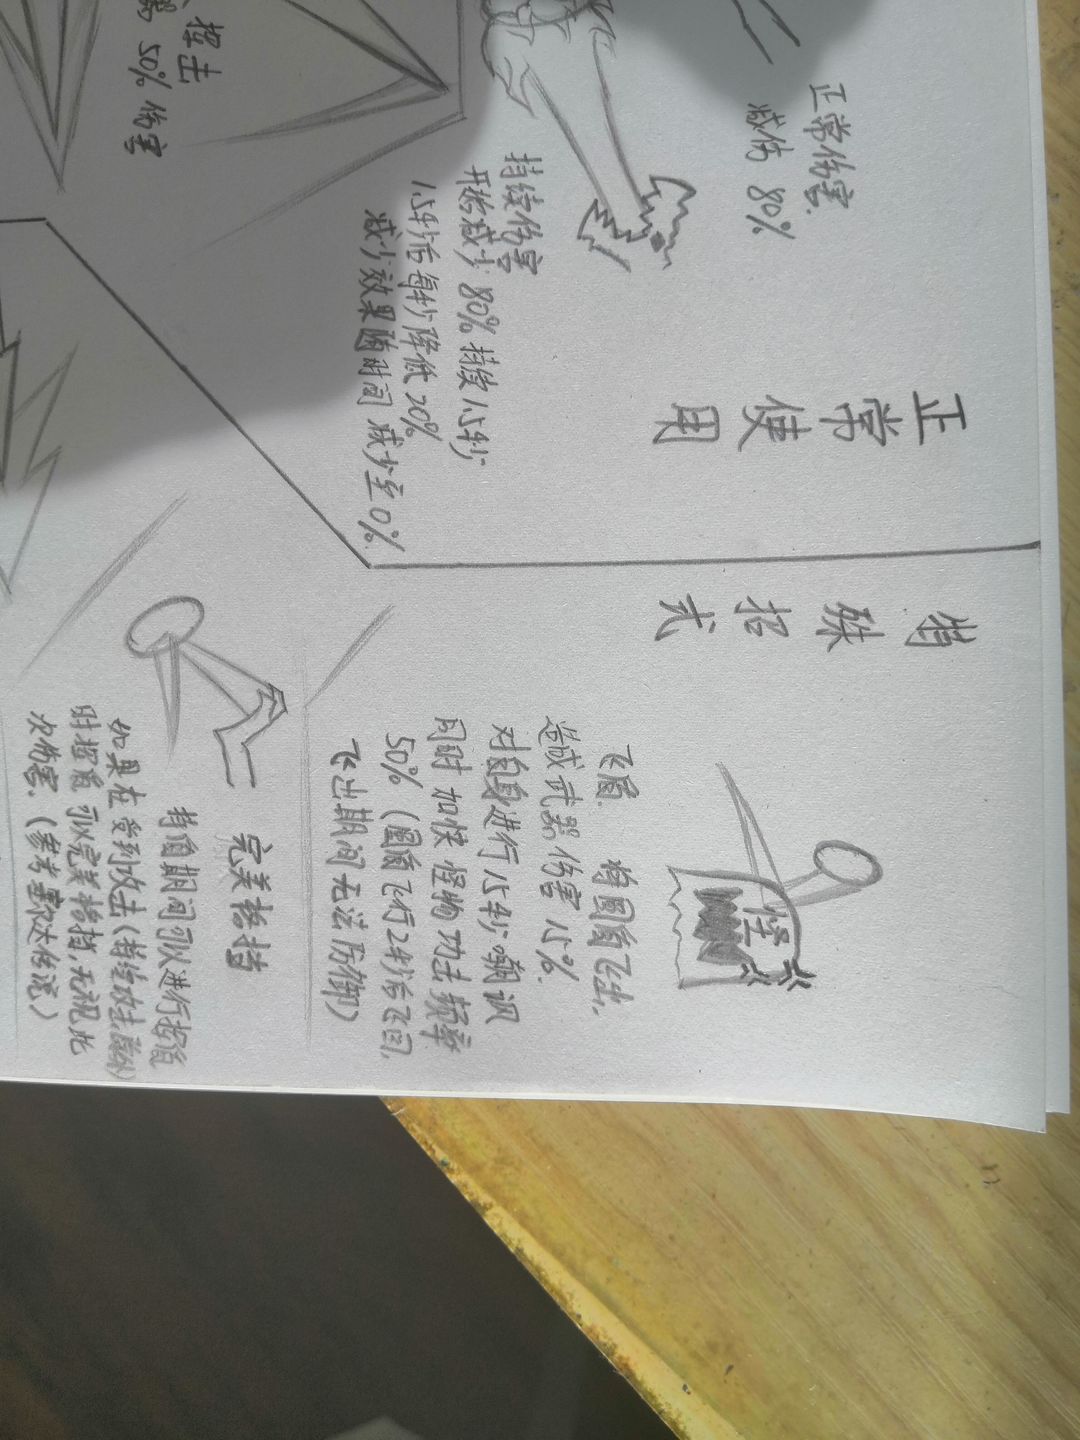 正常使用
正常伤害.
减伤 80%
持续伤害
开抢减少 80% 持续 1.5秒
1.5秒后每秒降低 20%
减少效果随时间 减少至 0%.
挥击
50% 伤害
特殊招式
怪
飞盾. 将圆盾飞出,
造成武器伤害 15%.
对自身进行 1.5秒 嘲讽
同时 加快 怪物 攻击 频率
50% (圆盾飞行 2秒后飞回,
飞出期间无法防御)
完美格挡
持盾期间可以进行招级
如果在受到攻击 (持续攻击除外)
时招盾 可以完美格挡, 无视此
次伤害. (参考塞尔达传说)